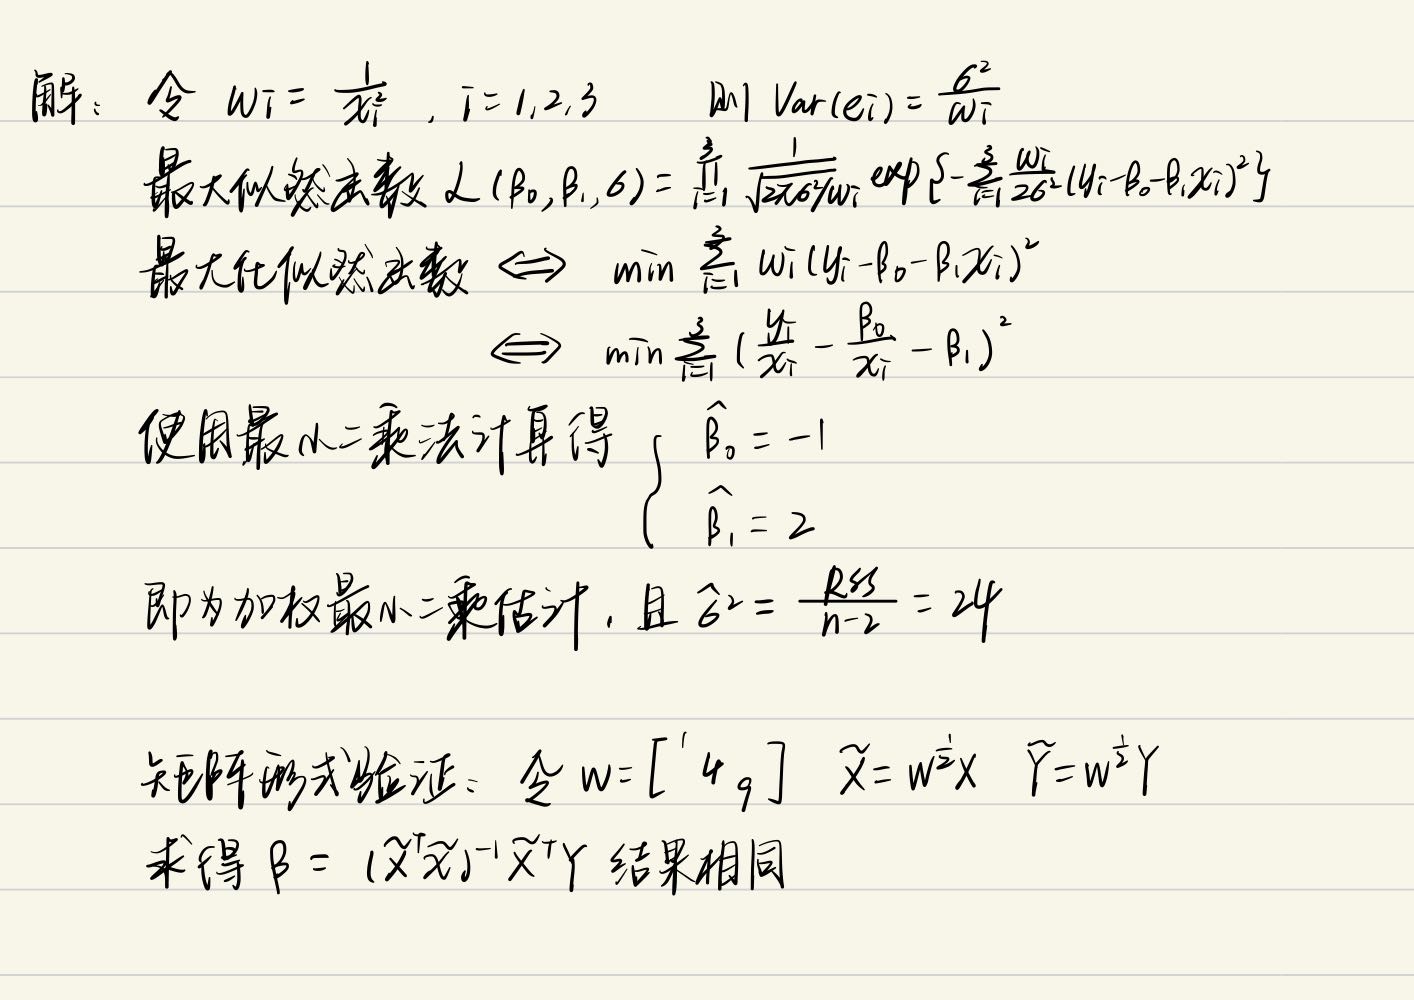 解: 令 wi = 1/xi² , i = 1,2,3 则 Var(ei) = σ²/wi
最大似然函数 L(β₀,β₁,σ) = ∏ᵢ₌₁³ 1/√(2πσ²/wi) exp{-∑ᵢ₌₁³ wi/2σ² (yi-β₀-β₁xi)²}
最大化似然函数 ⟺ min ∑ᵢ₌₁³ wi(yi-β₀-β₁xi)²
⟺ min ∑ᵢ₌₁³ (yi/xi - β₀/xi - β₁)²
使用最小二乘法计算得 { β̂₀ = -1
β̂₁ = 2
即为加权最小二乘估计, 且 σ̂² = RSS/(n-2) = 24
矩阵形式验证: 令 W = [1 4 9] X̃ = W^½X Ỹ = W^½Y
求得 β = (X̃ᵀX̃)⁻¹X̃ᵀY 结果相同